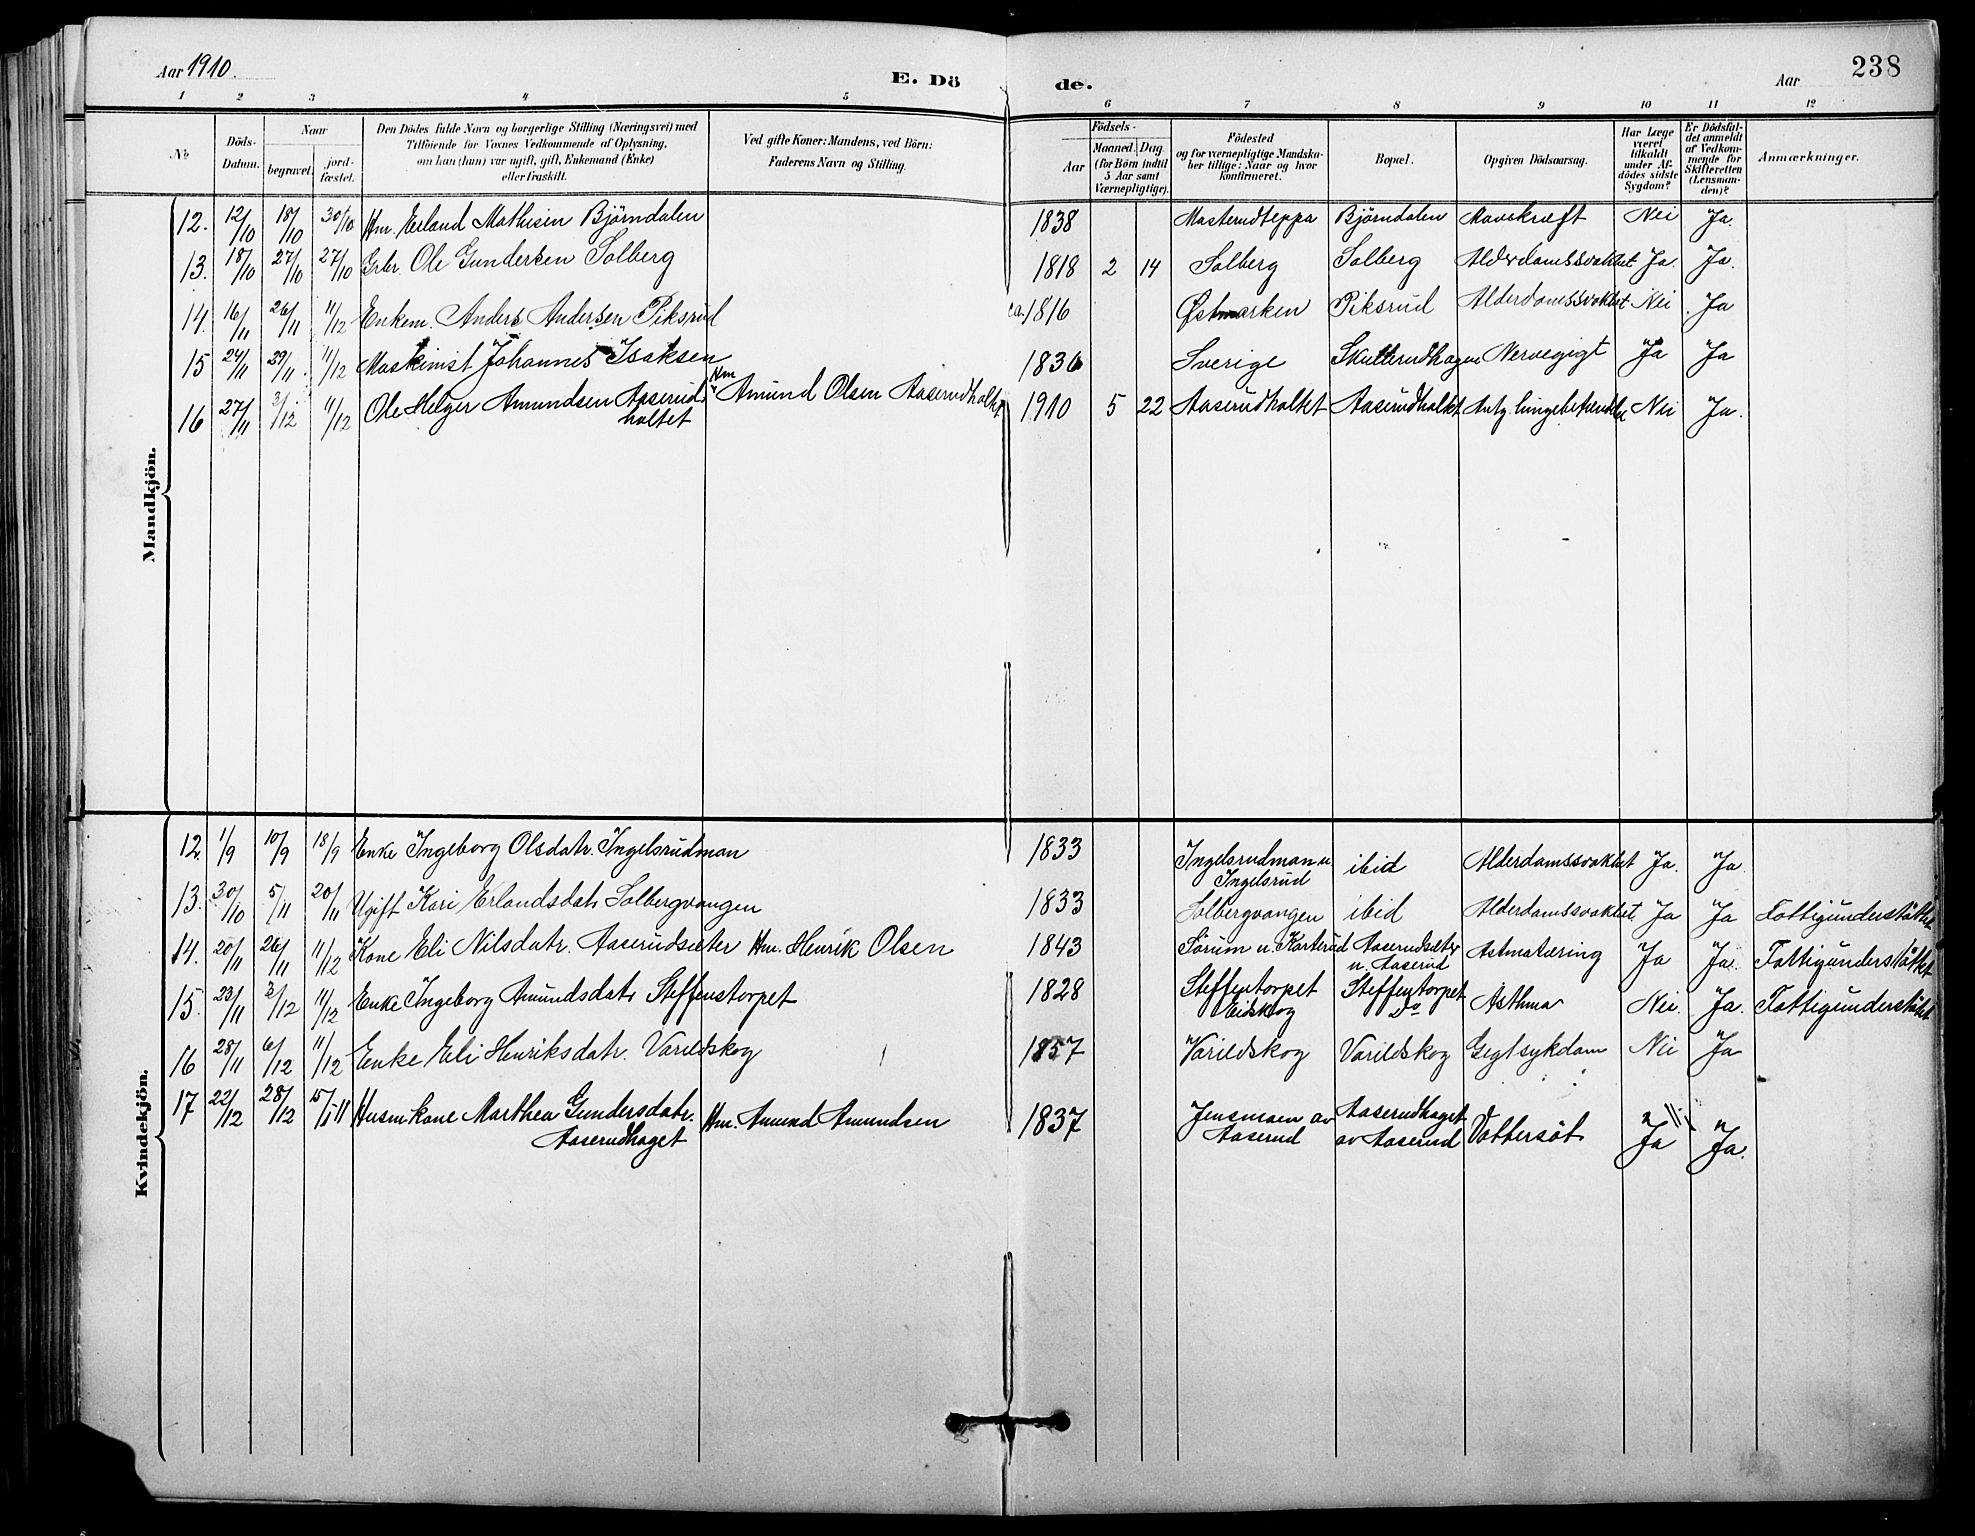 Aar 1910.
E. Dö de.
Aar 238
1 2 3 4 5 6 7 8 9 10 11 12
No
Döds-
Datum.
Naar
begravet.
jord-
fæstet.
Den Dödes fulde Navn og borgerlige Stilling (Næringsvei) med
Tilföiende for Voxnes Vedkommende af Oplysning,
om han (hun) var ugift, gift, Enkemand (Enke)
eller fraskilt.
Ved gifte Koner: Mandens, ved Börn:
Faderens Navn og Stilling.
Födsels-
Aar
Maaned. Dag.
(for Börn indtil
5 Aar samt
Værnepligtige).
Födested
og for værnepligtige Mandska-
ber tillige: Naar og hvor
konfirmeret.
Bopæl.
Opgiven Dödsaarsag.
Har Læge
været
tilkaldt
under Af-
dödes sidste
Sygdom?
Er Dödsfal-
det anmeldt
af Vedkom-
mende for
Skifteretten
(Lensman-
den)?
Anmærkninger.
Mandkjön.
12. 12/10 18/10 30/10 Hm. Erland Mathisen Björndalen 1838 Masterudteppa Björndalen Mavekræft Nei Ja.
13. 18/10 27/10 27/10 Grbr. Ole Gundersen Solberg 1818 2 14 Solberg Solberg Alderdomssvakhet Ja. Ja.
14. 16/11 26/11 11/12 Enkem. Anders Andersen Piksrud ca. 1816 Østmarken Piksrud Alderdomssvakhet Nei Ja
15 24/11 29/11. 11/12 Maskinist Johannes Isaksen 1836 Sverige Skullerudhagen Nervegigt Ja Ja
16 27/11 3/12 11/12 Ole Helger Amundsen Aaserud- Hm Amund Olsen Aaserudholtet 1910 5 22 Aaserudholtet Aaserudholtet Antg. lungebetændelse Nei Ja.
holtet
Kvindekjön.
12. 1/9 10/9 18/9 Enke Ingeborg Olsdatr. Ingelsrudmon 1833 Ingelsrudmon u. ibid Alderdomssvakhet Ja. Ja.
Ingelsrud
13. 30/10 5/11 20/11 Ugift Kari Erlandsdatr Solbergvangen 1833 Solbergvangen ibid Alderdomssvakhet. Ja Ja Fattigunderstöttet
14. 20/11 26/11 11/12 Kone Eli Nilsdatr. Aaserudsæter Hm. Henrik Olsen 1843 Sörum u. Karterud Aaserudsæter Astmatæring Ja Ja. Fattigunderstöttet
u. Aaserud
15. 23/11 3/12 11/12 Enke Ingeborg Amundsdatr Steffenstorpet 1828 Steffentorpet Steffentorpet Asthma Nei. Ja. Fattigunderstöttet
Eidskog Do
16 28/11 6/12 11/12 Enke Eli Henriksdatr. Varildskog 1857 Varildskog Varildskog Gigtsykdom Nei Ja
17 22/12 28/12 15/1-11 Husm.kone Marthea Gundersdatr. Hm. Amund Amundsen 1837 Jensmoen av Aaserudhaget Vattersöt Ja Ja.
Aaserudhaget Aaserud av Aaserud